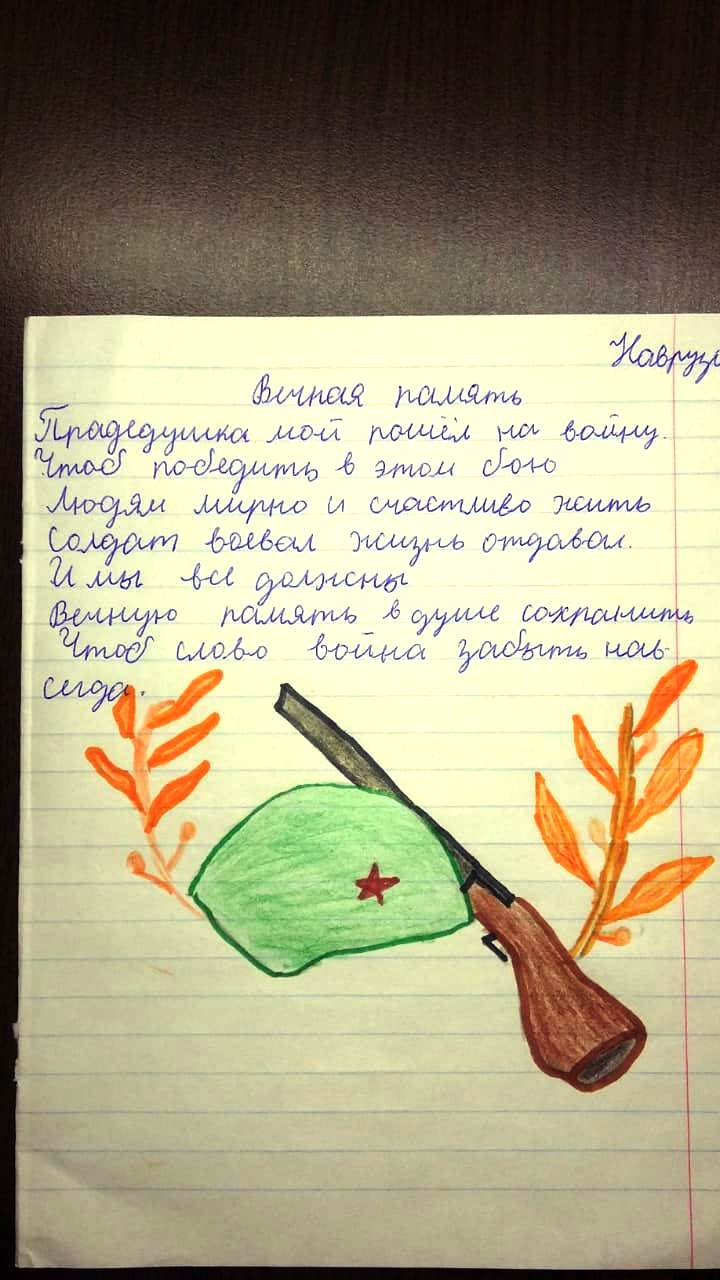 Наврузо
Вечная память
Прадедушка мой пошёл на войну.
Чтоб победить в этом бою
Людям мирно и счастливо жить
Солдат воевал жизнь отдавал.
И мы все должны
Вечную память в душе сохранить
Чтоб слово война забыть нав-
сегда.